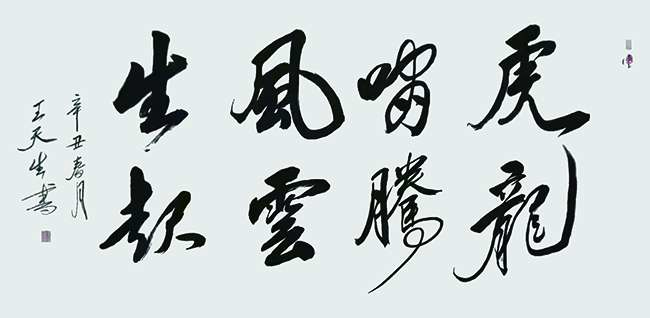 虎龍
嘯騰
風雲
生起
辛丑春月
王天生書